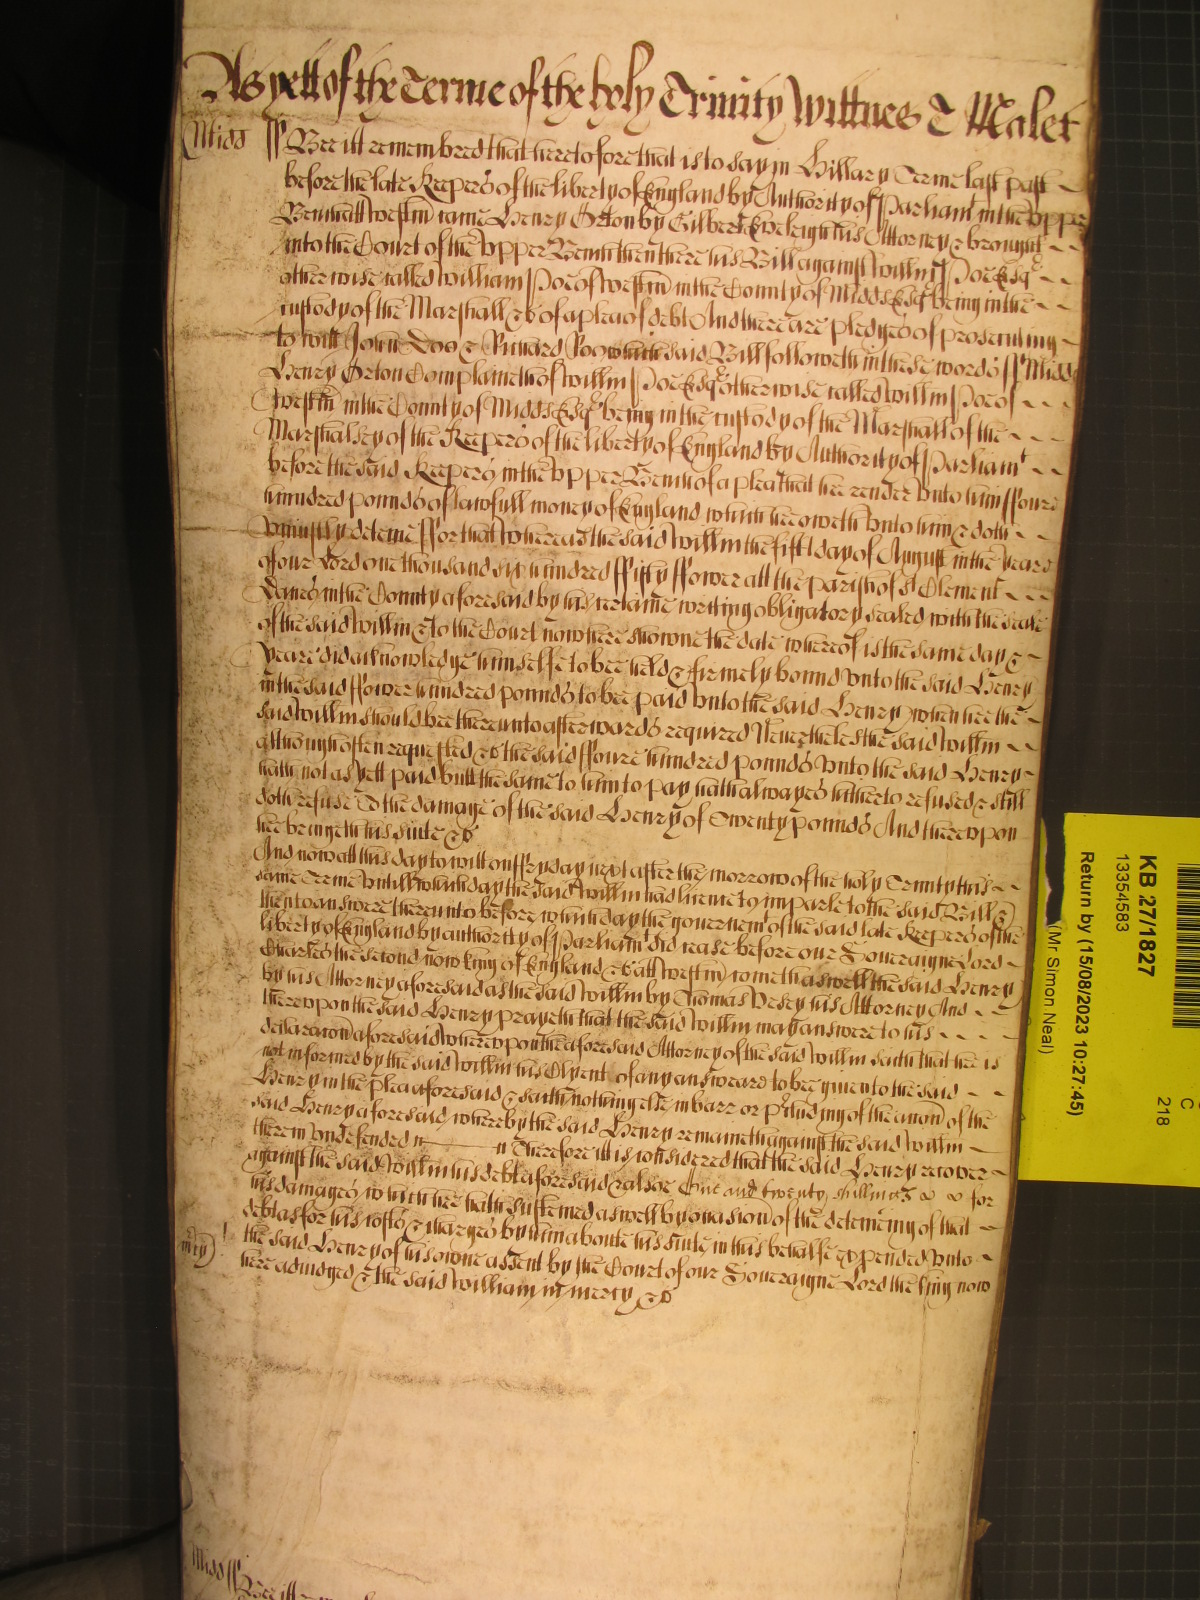 As yett of the Terme of the holy Trinity Wittnes T Malet
Midd ss Bee itt remembred that heretofore that is to say in Hillary Terme last past
before the late Keepers of the liberty of England by Authority of Parliamt in the Upper
Bench att Westm came Henry Orton by Gilbert Eveleigh his Attorney & brought
into the Court of the Upper Bench then there his Bill against Willm Poe Esqr
otherwise called William Poe of Westm in the County of Midds Esqr being in the
custody of the Marshall &c of a plea of debt And there are pledges of prosecuting
to witt John Doo & Richard Roo which said Bill followeth in these words ss Midds
Henry Orton Complaineth of Willm Poe Esqr otherwise called Willm Poe of
Westm in the County of Midds Esqr being in the custody of the Marshall of the
Marshalsey of the Keepers of the liberty of England by Authority of Parliamt
before the said Keepers in the Upper Bench of a plea that hee render unto him ffoure
hundred pounds of lawfull money of England which hee oweth unto him & doth
uniustly deteine ffor that whereas the said Willm the fifth day of August in the yeare
of our Lord one thousand six hundred ffifty ffower att the parish of St Clement
Danes in the County aforesaid by his certaine writing obligatory sealed with the seale
of the said Willm & to the Court now here showne the date whereof is the same day &
yeare did acknowledge himselfe to bee held & firmely bound unto the said Henry
in the said ffower hundred pounds to bee paid unto the said Henry when hee the
said Willm should bee thereunto afterwards required Neverthelesse the said Willm
although often requested &c the said ffoure hundred pounds unto the said Henry
hath not as yett paid butt the same to him to pay hath alwayes hitherto refused & still
doth refuse To the damage of the said Henry of Twenty pounds And thereupon
hee bringeth his suite &c
And now att this day to witt on ffryday next after the morrow of the holy Trinity this
same Terme untill which day the said Willm had licence to imparle to the said Bill &
then to answere thereunto before which day the governemt of the said late Keepers of the
liberty of England by authority of Parliamt did cease before our Soveraigne Lord
Charles the second now king of England &c att Westm cometh aswell the said Henry
by his Attorney aforesaid as the said Willm by Thomas Vesey his Attorney And
thereupon the said Henry prayeth that the said Willm may answere to his
declaracon aforesaid whereupon the aforesaid Attorney of the said Willm saith that hee is
not informed by the said Willm his Clyent of any answeare to bee given to the said
Henry in the plea aforesaid & saith nothing else in barr or preluding of the accon of the
said Henry aforesaid whereby the said Henry remaineth against the said Willm
therein undefended Therefore itt is considered that the said Henry recover
against the said Willm his debt aforesaid & alsoe One and twenty shillings for
his damages which hee hath susteined aswell by occasion of the deteining of that
debt as for his costs & charges by him about his suite in this behalfe expended unto
mcy the said Henry of his owne assent by the Court of our Soveraigne Lord the king now
here adiudged & the said William in mercy &c
Midd ss Bee itt
KB 27/1827
13354583
Return by (15/08/2023 10:27:45)
(Mr Simon Neal)
C
218